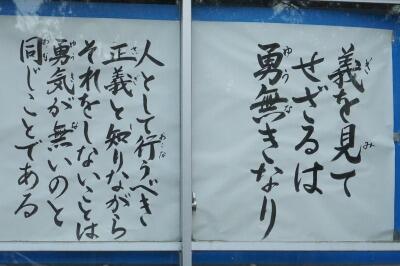 義を見て
せざるは
勇無きなり
人として行うべき
正義と知りながら
それをしないことは
勇気が無いのと
同じことである